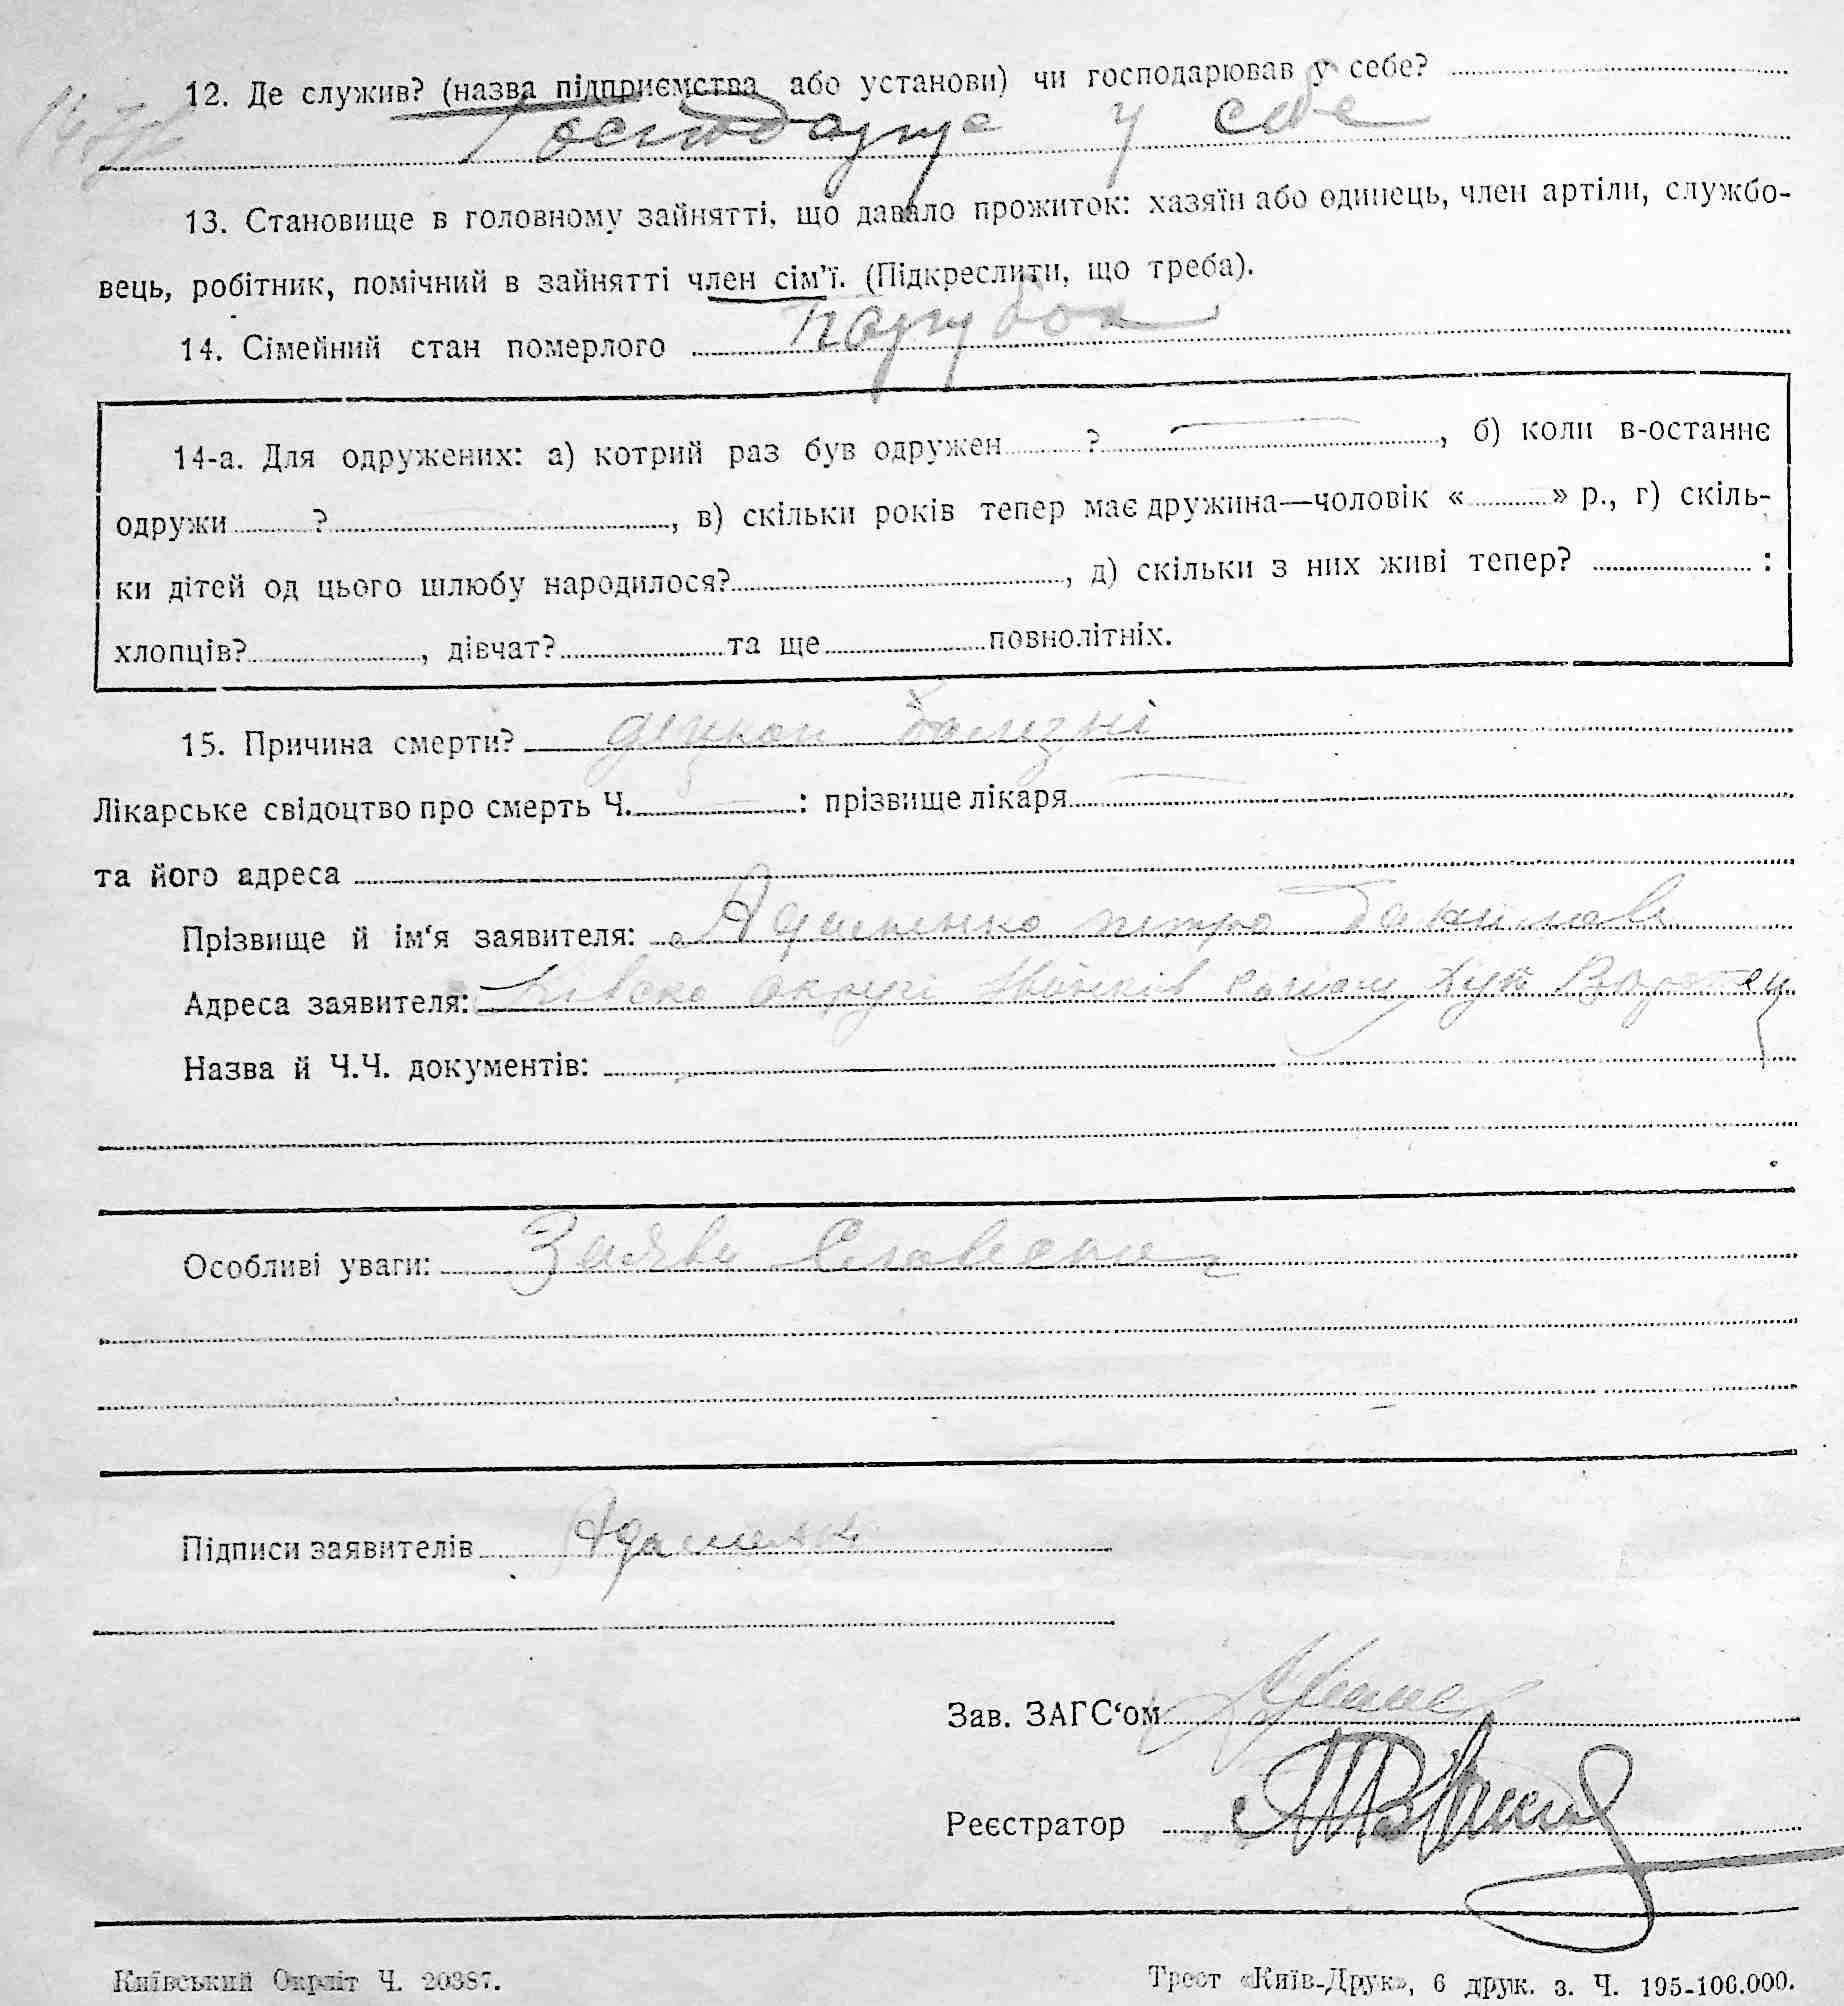 12. Де служив? (назва підприємства або установи) чи господарював у себе?
Господарує у себе
13. Становище в головному зайнятті, що давало прожиток: хазяїн або одинець, член артіли, службо-
вець, робітник, помічний в зайнятті член сім'ї. (Підкреслити, що треба).
14. Сімейний стан померлого парубок
14-а. Для одружених: а) котрий раз був одружен ? , б) коли в-останнє
одружи ? , в) скільки років тепер має дружина—чоловік « » р., г) скіль-
ки дітей од цього шлюбу народилося? , д) скільки з них живі тепер? :
хлопців? , дівчат? та ще повнолітніх.
15. Причина смерти?
Лікарське свідоцтво про смерть Ч. : прізвище лікаря
та його адреса
Прізвище й ім‘я заявителя: Адаменко петро
Адреса заявителя: округі
Назва й Ч.Ч. документів:
Особливі уваги: Заява Словесна
Підписи заявителів Адаменко
Зав. ЗАГС‘ом
Реєстратор
Київський Окрліт Ч. 20387.
Трест «Київ-Друк», 6 друк. з. Ч. 195-100.000.